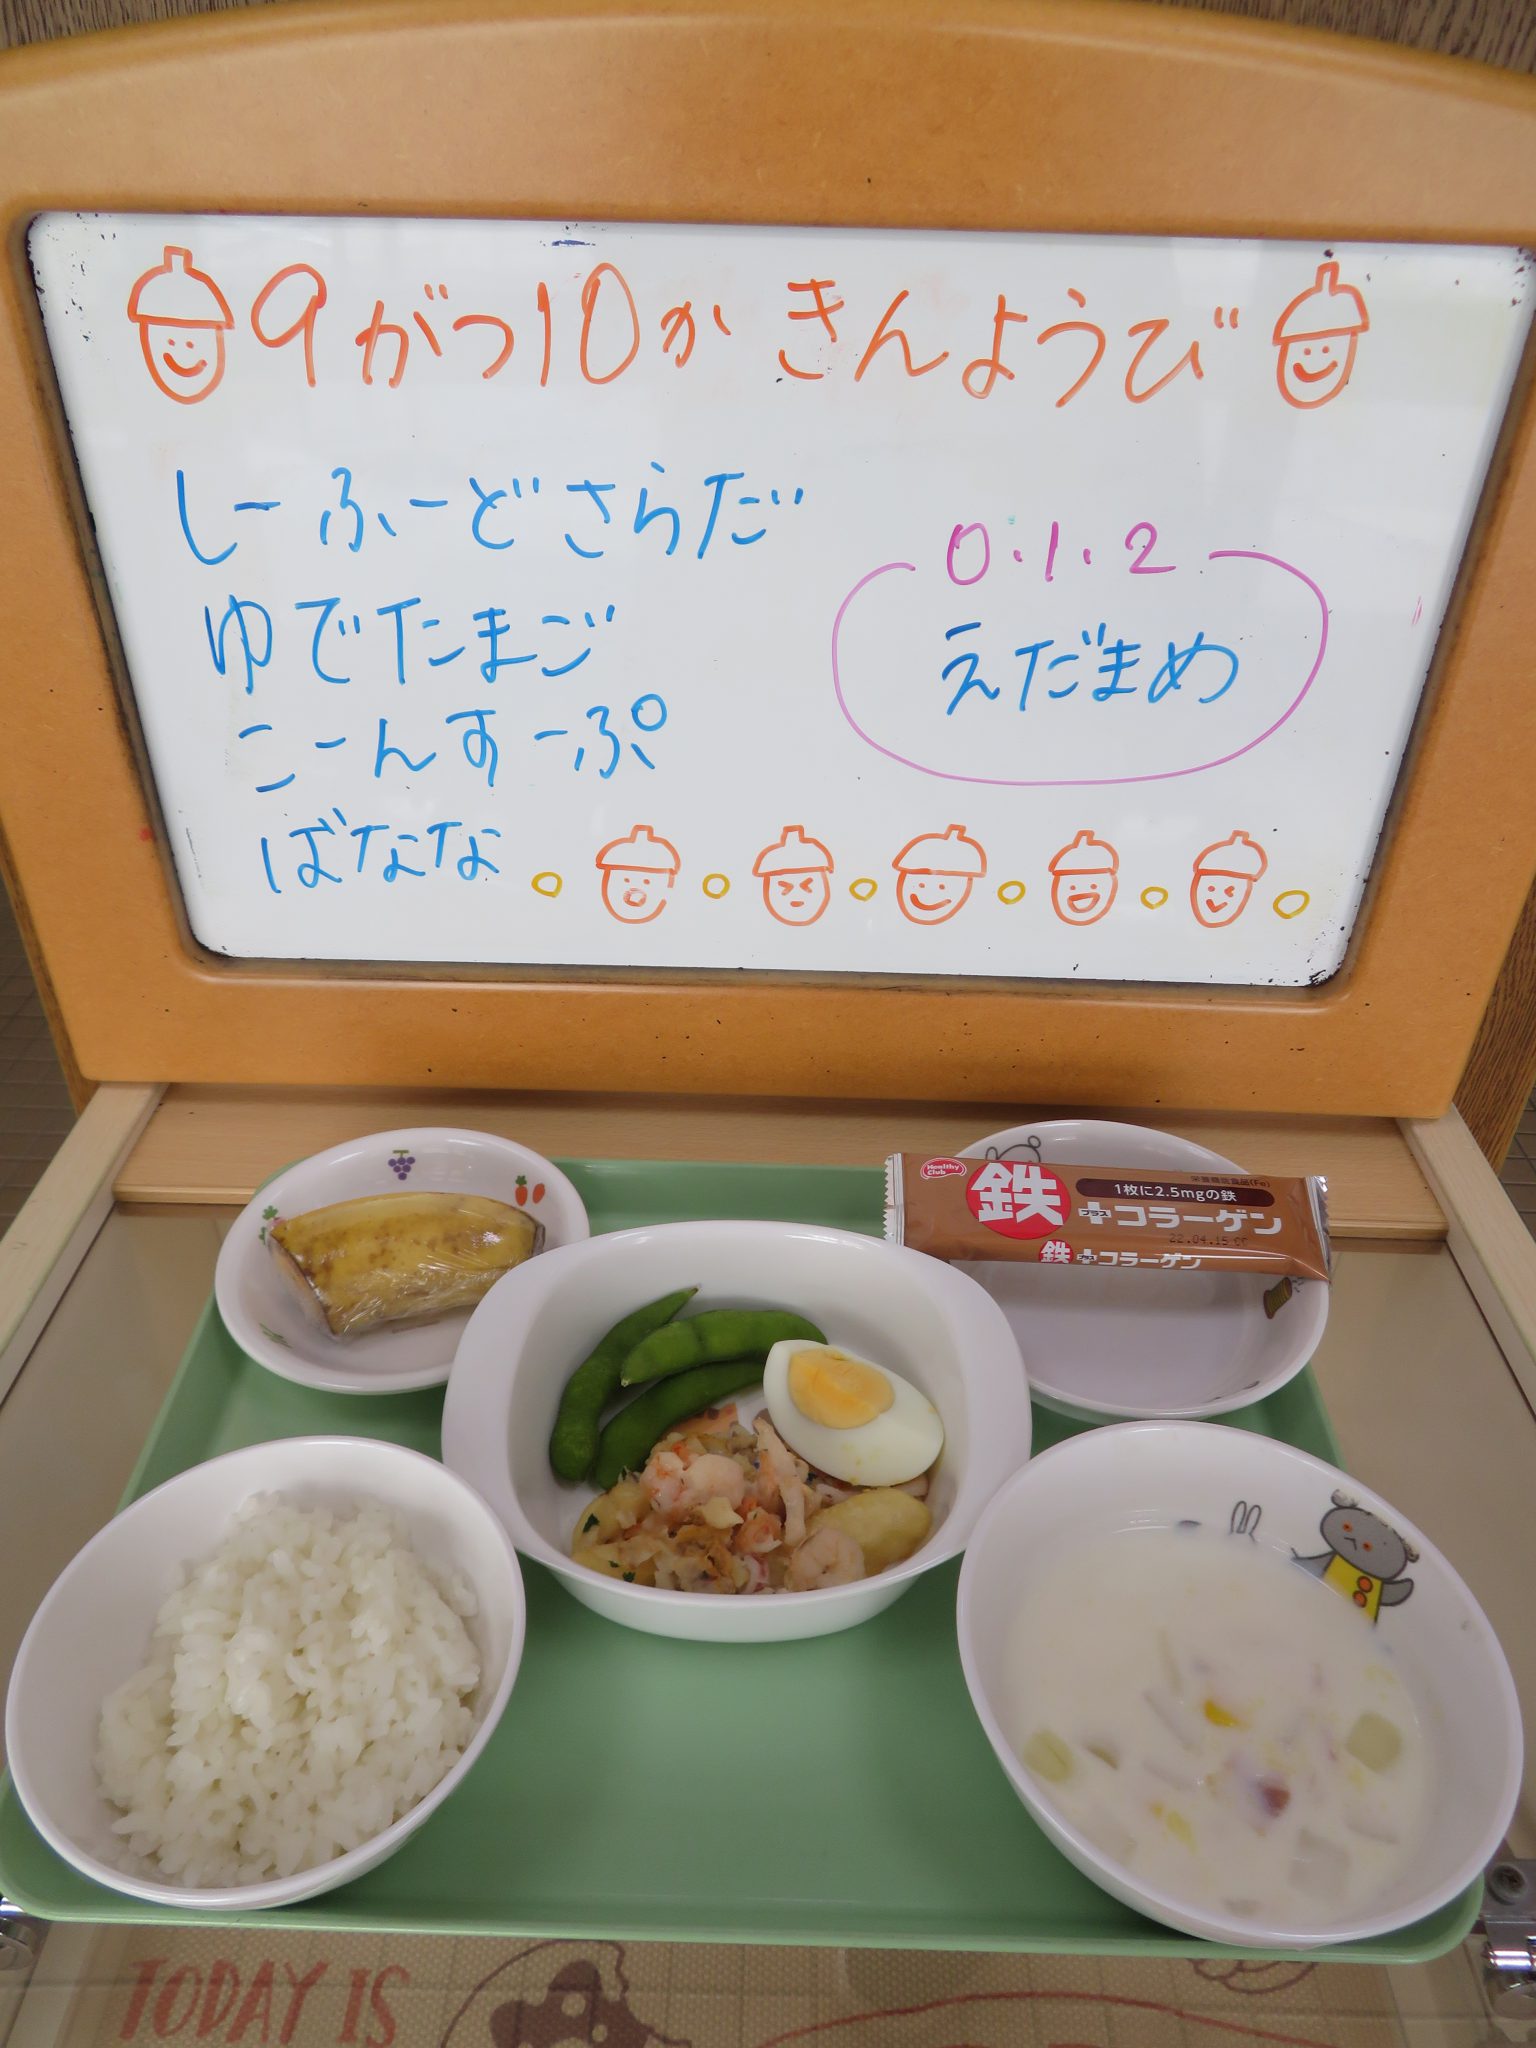 9がつ10か きんようび
しーふーどさらだ
ゆでたまご
こーんすーぷ
ばなな
0.1.2
えだまめ
Healthy Club
鉄
栄養機能食品(Fe)
1枚に2.5mgの鉄
プラス+コラーゲン
22.04.15
鉄プラス+コラーゲン
TODAY IS